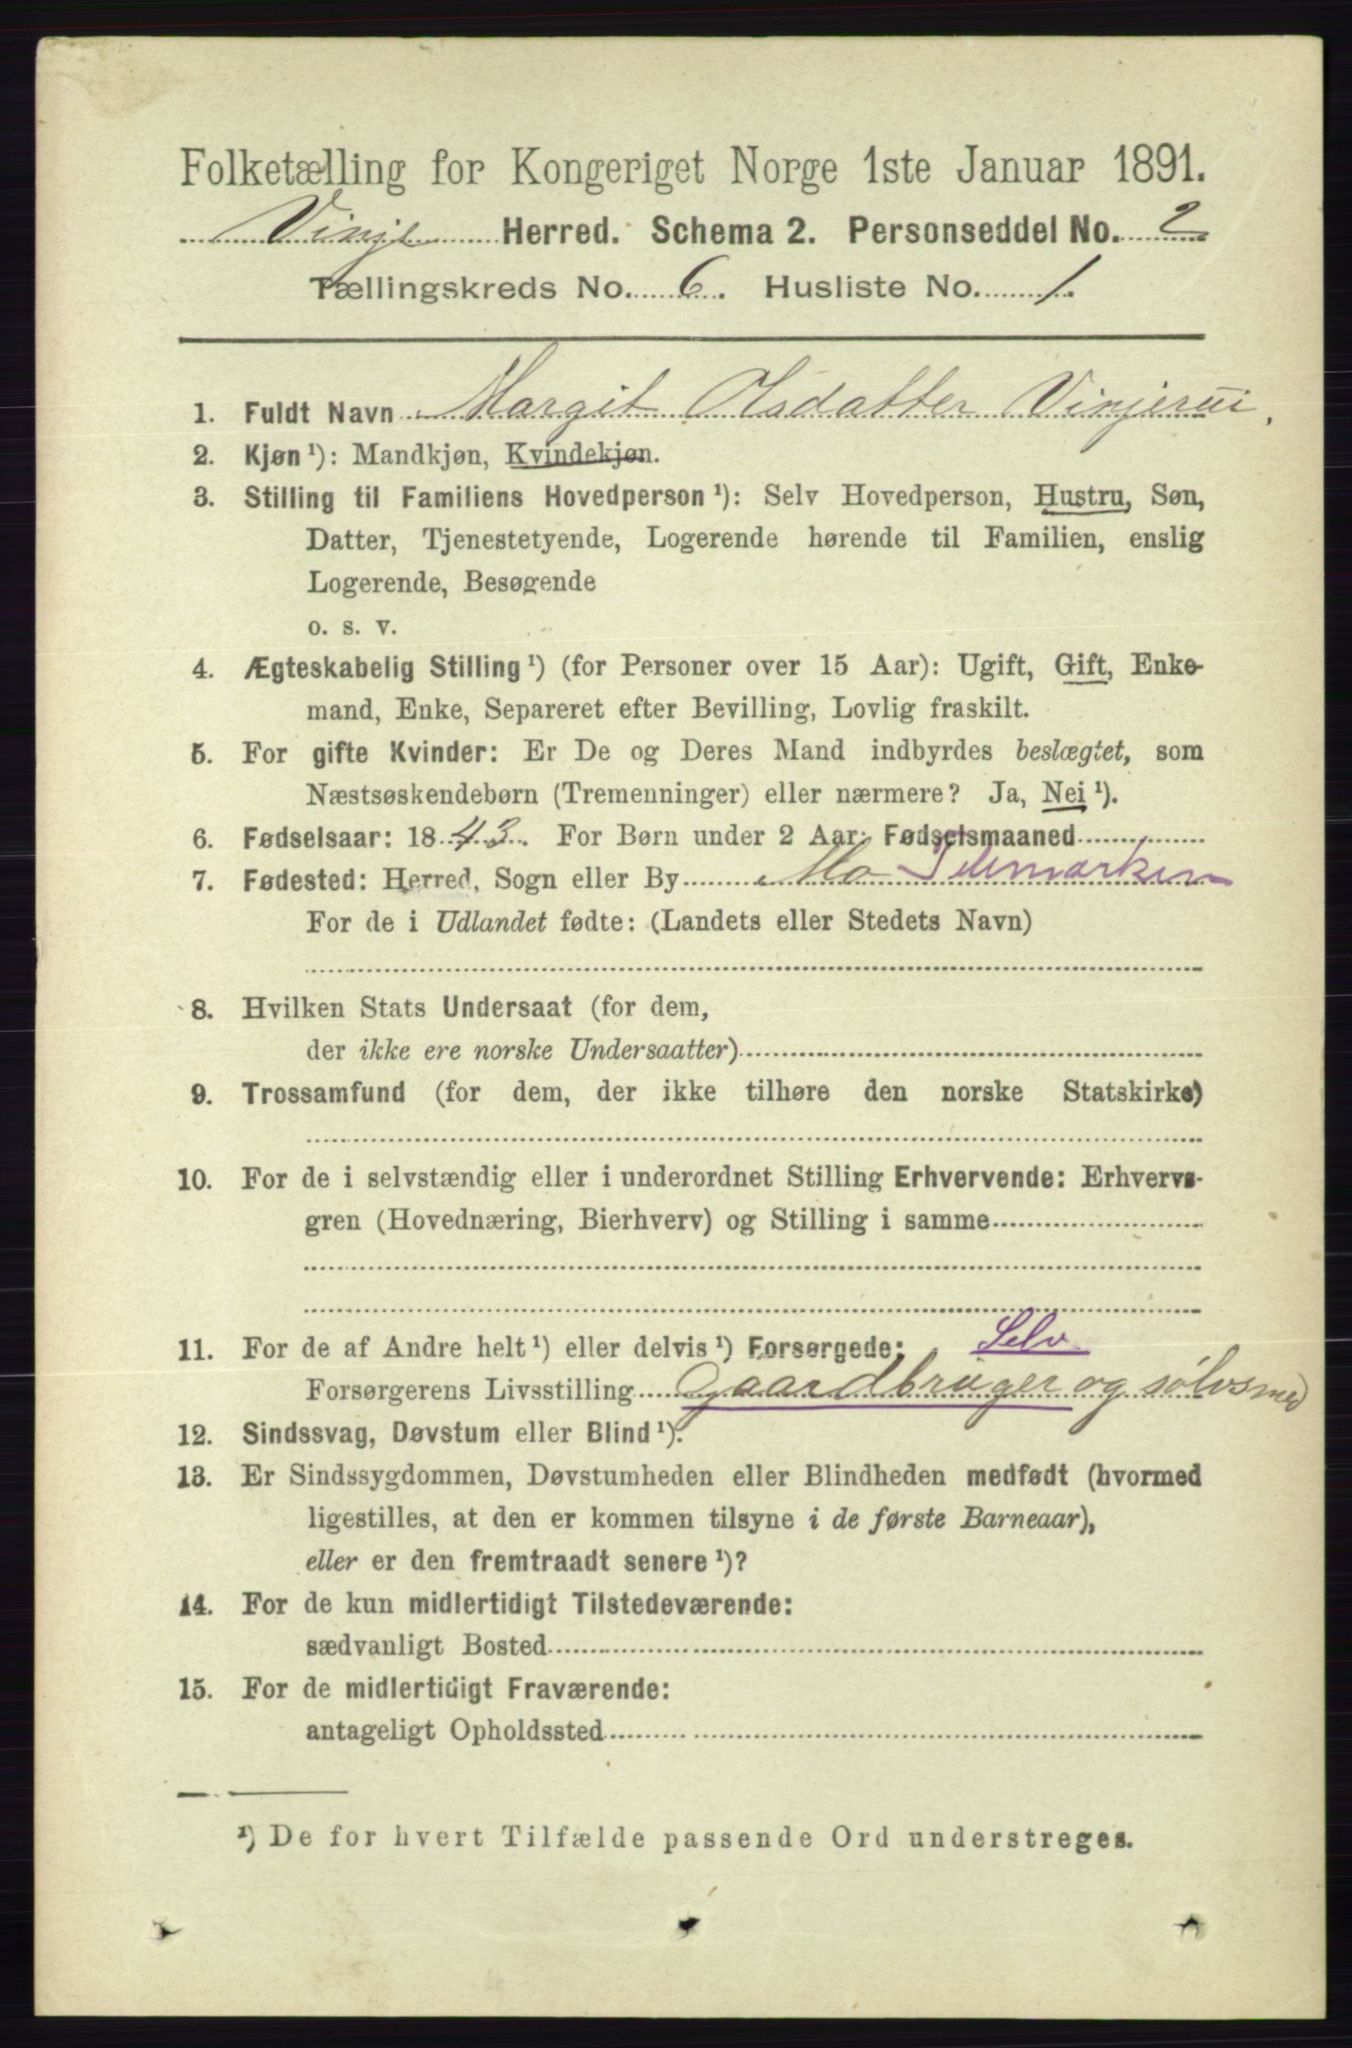 Folketælling for Kongeriget Norge 1ste Januar 1891.
Vinje Herred. Schema 2. Personseddel No. 2
Tællingskreds No. 6. Husliste No. 1.
1. Fuldt Navn Margit Olsdatter Vinjerui.
2. Kjøn ¹): Mandkjøn, Kvindekjøn.
3. Stilling til Familiens Hovedperson ¹): Selv Hovedperson, Hustru, Søn,
Datter, Tjenestetyende, Logerende hørende til Familien, enslig
Logerende, Besøgende
o. s. v.
4. Ægteskabelig Stilling ¹) (for Personer over 15 Aar): Ugift, Gift, Enke-
mand, Enke, Separeret efter Bevilling, Lovlig fraskilt.
5. For gifte Kvinder: Er De og Deres Mand indbyrdes beslægtet, som
Næstsøskendebørn (Tremenninger) eller nærmere? Ja, Nei ¹).
6. Fødselsaar: 1843. For Børn under 2 Aar: Fødselsmaaned
7. Fødested: Herred, Sogn eller By Mo Telemarken
For de i Udlandet fødte: (Landets eller Stedets Navn)
8. Hvilken Stats Undersaat (for dem,
der ikke ere norske Undersaatter)
9. Trossamfund (for dem, der ikke tilhøre den norske Statskirke)
10. For de i selvstændig eller i underordnet Stilling Erhvervende: Erhvervs-
gren (Hovednæring, Bierhverv) og Stilling i samme
11. For de af Andre helt ¹) eller delvis ¹) Forsørgede: Selv
Forsørgerens Livsstilling Gaardbruger og sølvsmed
12. Sindssvag, Døvstum eller Blind ¹).
13. Er Sindssygdommen, Døvstumheden eller Blindheden medfødt (hvormed
ligestilles, at den er kommen tilsyne i de første Barneaar),
eller er den fremtraadt senere ¹)?
14. For de kun midlertidigt Tilstedeværende:
sædvanligt Bosted
15. For de midlertidigt Fraværende:
antageligt Opholdssted
¹) De for hvert Tilfælde passende Ord understreges.